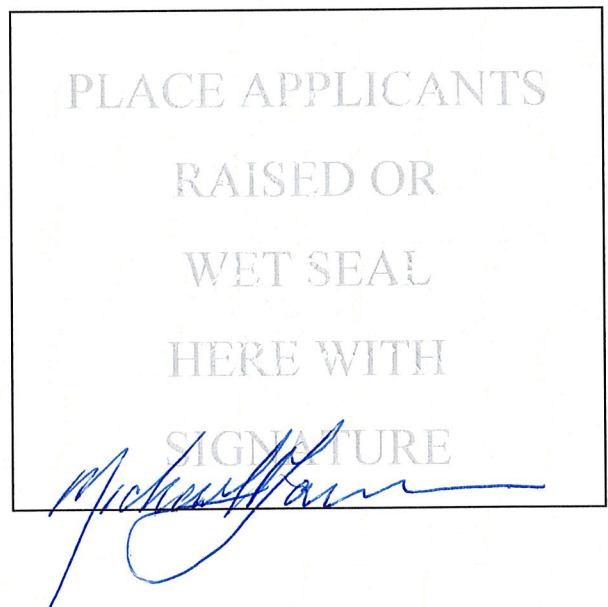 PLACE APPLICANTS
RAISED OR
WET SEAL
HERE WITH
SIGNATURE